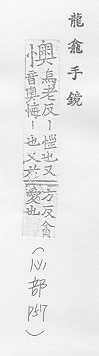 龍龕手鏡
懊烏老反｜愷也又
音奧悔｜也又於
六反貪
愛也
(心部 P57)